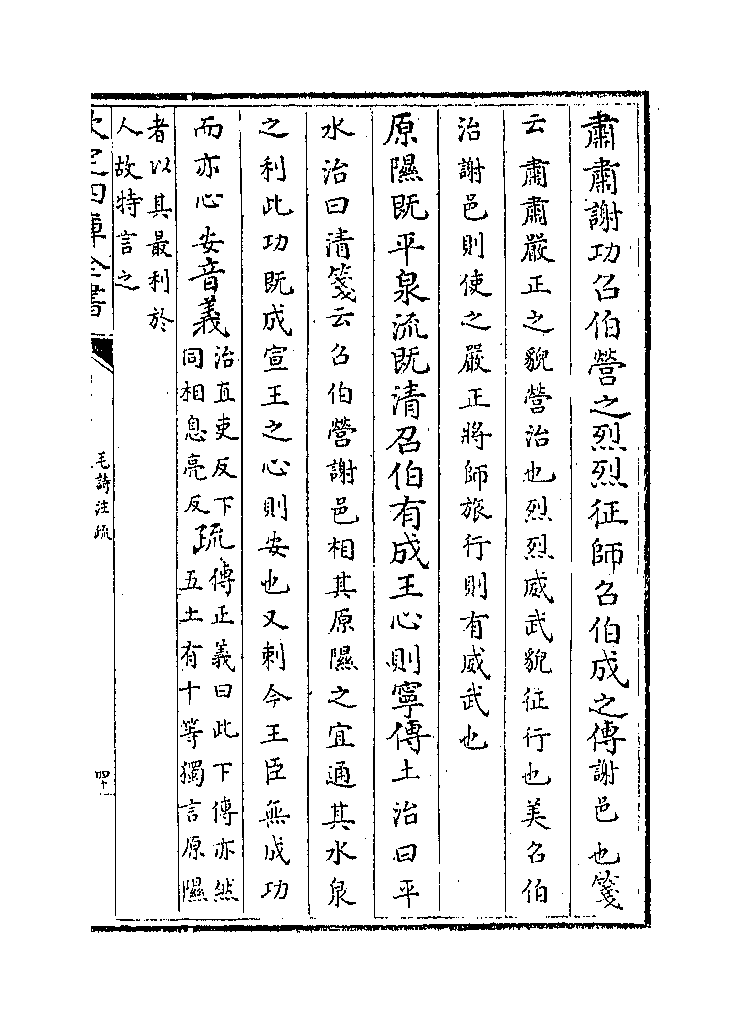 肅肅謝功召伯營之烈烈征師召伯成之傳謝邑也箋
云肅肅嚴正之貌營治也烈烈威武貌征行也美召伯
治謝邑則使之嚴正將師旅行則有威武也
原隰既平泉流既清召伯有成王心則寧傳土治曰平
水治曰清箋云召伯營謝邑相其原隰之宜通其水泉
之利此功既成宣王之心則安也又刺今王臣無成功
而亦心安音義
治直吏反下
同相息亮反
疏
傳正義曰此下傳亦然
五土有十等獨言原隰
者以其最利於
人故特言之
欽定四庫全書
毛詩注疏
四十一